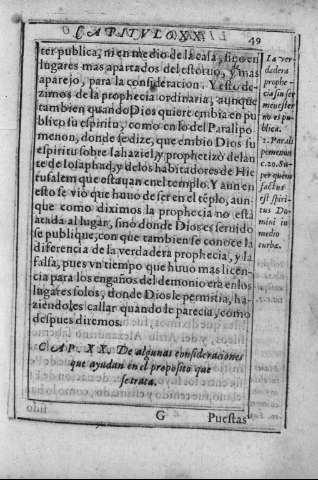 CAPITVLO XX.
49
ter publica, ni en medio de la casa, sino en
lugares mas apartados del estoruo, y mas
aparejo, para la consideracion. Y esto de-
zimos de la prophecia ordinaria, aunque
tambien quando Dios quiere embia en pu
blico su espiritu, como en lo del Paralipo
menon, donde se dize, que embio Dios su
espiritu sobre Iahaziel, y prophetizò delan
te de Iosaphad, y de los habitadores de Hie
rusalem que estauan en el templo. Y aun en
esto se vio que huuo de ser en el tẽplo, aun
que como diximos la prophecia no està
atada al lugar, sino donde Dios es seruido
se publique, con que tambien se conoce la
diferencia de la verdadera prophecia, y la
falsa, pues vn tiempo que huuo mas licen-
cia para los engaños del demonio era en los
lugares solos, donde Dios le permitia, ha-
ziẽdoles callar quando le parecia, como
despues diremos.
La ver
dadera
prophe-
cia sin ser
menester
no es pu-
blica.
2. Parali
pomenon
c. 20. Su-
per quẽm
factus
est spiri-
tus Do-
mini in
medio
turbæ.
CAP. XX. De algunas consideraciones
que ayudan en el proposito que
se trata.
G
Puestas